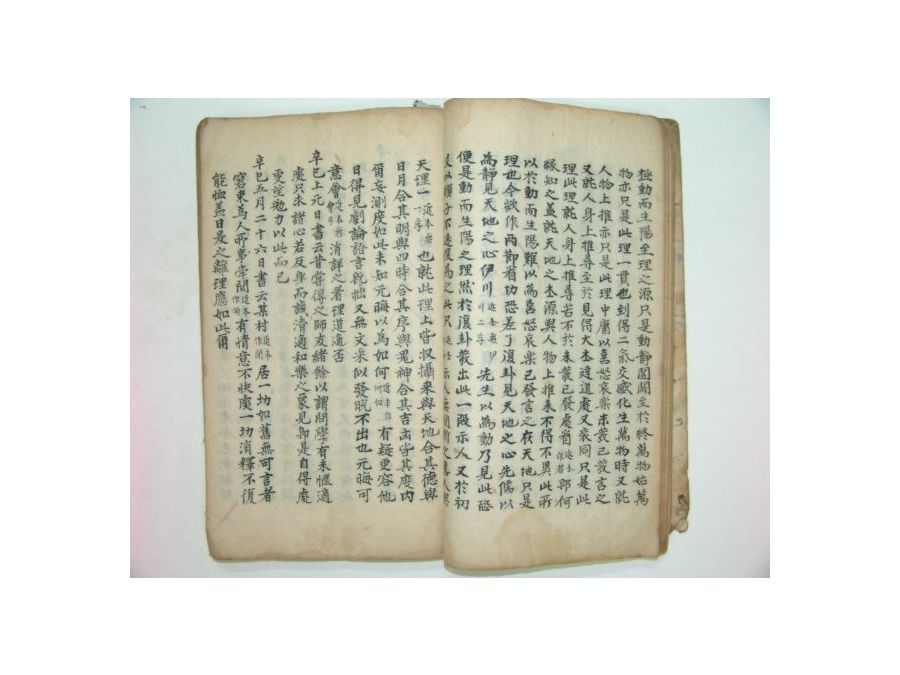 極動而生陽至理之源只是動靜闔闢至於終萬物始萬
物亦只是此理一貫也到得二氣交感化生萬物時又就
人物上推亦只是此理中庸以喜怒哀樂未發已發言之
又就人身上推尋至於見得大本達道處又衮同只是此
理此理就人身上推尋若不於未發已發處看 近本作者 即何
緣知之蓋就天地之本源與人物上推來不得不異此所
以於動而生陽難以爲喜怒哀樂已發言之在天地只是
理也今欲作兩節看切恐差了復卦見天地之心先儒以
爲靜見天地之心伊川 近本無伊川二字 先生以爲動乃見此恐
便是動而生陽之理然於復卦發出此一段示人又於初
爻以顔子不遠復爲之此只 示人無間斷之意人與
天理一 近本無一字 也就此理上皆收攝來與天地合其德與
日月合其明與四時合其序與鬼神合其吉凶皆其度內
爾妄測度如此未知元晦以爲如何 近本作何如 有疑更容他
日得見劇論語言旣拙又無文采似發脫不出也元晦可
意會 近本無會字 消詳之看理道通否
辛巳上元日書云昔嘗得之師友緖餘以謂問學有未愜適
處只求諸心若反身而誠淸通和樂之象見卽是自得處
更望勉力以此而已
辛巳五月二十六日書云某村 近本作聞 居一切如舊無可言者
窘東爲人所牽 聞 近本作爾 有情意不快處一切消釋不復
能恤蓋日昃之離理應如此爾